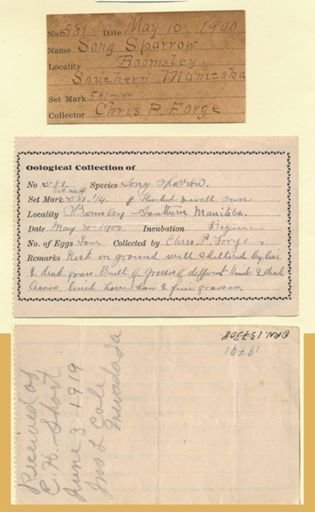 No 581 Date May 10. 1900
Name Song Sparrow
Locality Boomsley
Southern Manitoba
Set Mark 581
Collector Chris P. Forge
Oological Collection of
No 581 Species Song Sparrow.
Set Mark 581. 1/4.
Locality Bomsley Southern Manitoba.
Date May 10. 1900. Incubation Begun
No. of Eggs four Collected by Chris. P. Forge.
Remarks Nest on ground well sheltered by
& dead grass. Built of grasses of different kinds & dead
leaves lined & fine grasses
BRN. 137308
19791
Received of
E. H. Short
June 3. 1919
Jno L Cole
Nevada Ia